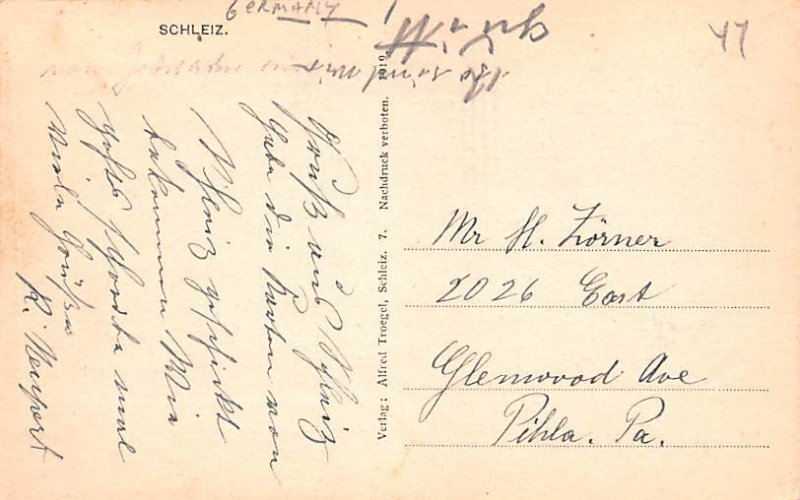 GERMANY
SCHLEIZ.
47
Gruß aus Schleiz
Habe die Karten von
Schleiz geschickt
bekommen Wie
gehts schreibe mal
Viele Grüße
R. Neupert
Verlag: Alfred Troegel, Schleiz. 7. Nachdruck verboten. 1919.
Mr H. Zörner
2026 East
Glenwood Ave
Pihla. Pa.